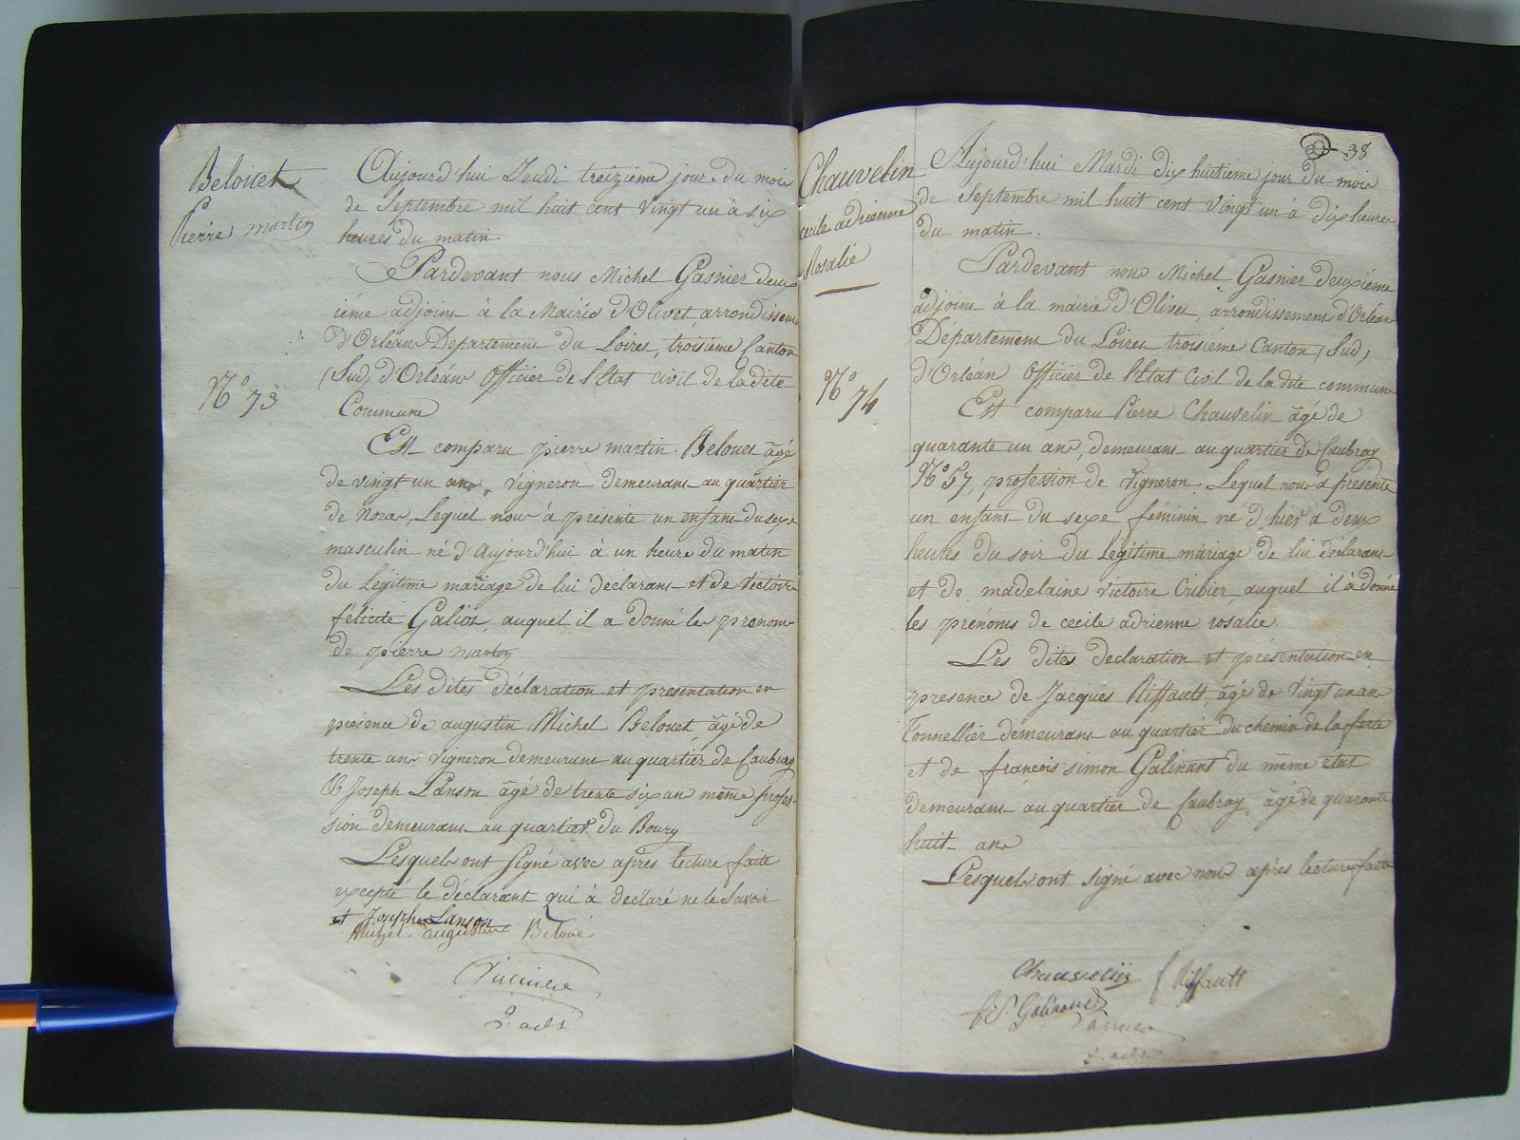 Belouet
Pierre martin
N° 73
Aujourd'hui Jeudi treizieme jour du mois
de Septembre mil huit cent vingt un à six
heures du matin
Pardevant nous Michel Gasnier deux
ième adjoint à la Mairie d'Olivet arrondissem
d'Orléans Departement du Loiret, troisieme Canton
(Sud) d'Orléans Officier de l'Etat civil de la dite
Commune
Est comparu pierre martin Belouet âgé
de vingt un ans, vigneron demeurant au quartier
de Noras, Lequel nous à présenté un enfant du sexe
masculin né d'aujourd'hui à un heure du matin
du Légitime mariage de lui declarant et de victoire
félicité Galiot, auquel il a donné les prenoms
de pierre martin
Les dites déclaration et presentation en
présence de augustin Michel Belouet, âgé de
trente ans vigneron demeurant au quartier de Caubray
& Joseph Lanson âgé de trente six ans même profes-
sion demeurant au quartier du Bourg
Lesquels ont signé avec après lecture faite
excepté le déclarant qui à déclaré ne le savoir
et Joseph Lanson
Michel augustin Beloué
2. adt
38
Chauvelin
cecile adrienne
Rosalie
N° 74
Aujourd'hui Mardi dix huitieme jour du mois
de Septembre mil huit cent vingt un à dix heures
du matin.
Pardevant nous Michel Gasnier deuxième
adjoint à la mairie d'Olivet, arrondissement d'Orléans
Departement du Loiret troisieme Canton (Sud)
d'Orléans Officier de l'Etat Civil de la dite commune
Est comparu Pierre Chauvelin âgé de
quarante un ans, demeurant au quartier de Caubray
N° 57, profession de vigneron, Lequel nous à présenté
un enfant du sexe féminin né d'hier à deux
heures du soir du Légitime mariage de lui déclarant
et de madelaine victoire Cribier, auquel il à donné
les prénoms de cecile adrienne rosalie
Les dites declaration et présentation en
presence de Jacques Riffault, âgé de vingt un an
Tonnellier demeurant au quartier du chemin de la ferté
et de francois simon Galinant du même etat
demeurant au quartier de Caubray âgé de quarante
huit ans
Lesquels ont signé avec nous après lecture faite
Chauvelin J Riffault
f. S. Galinand
2. adt